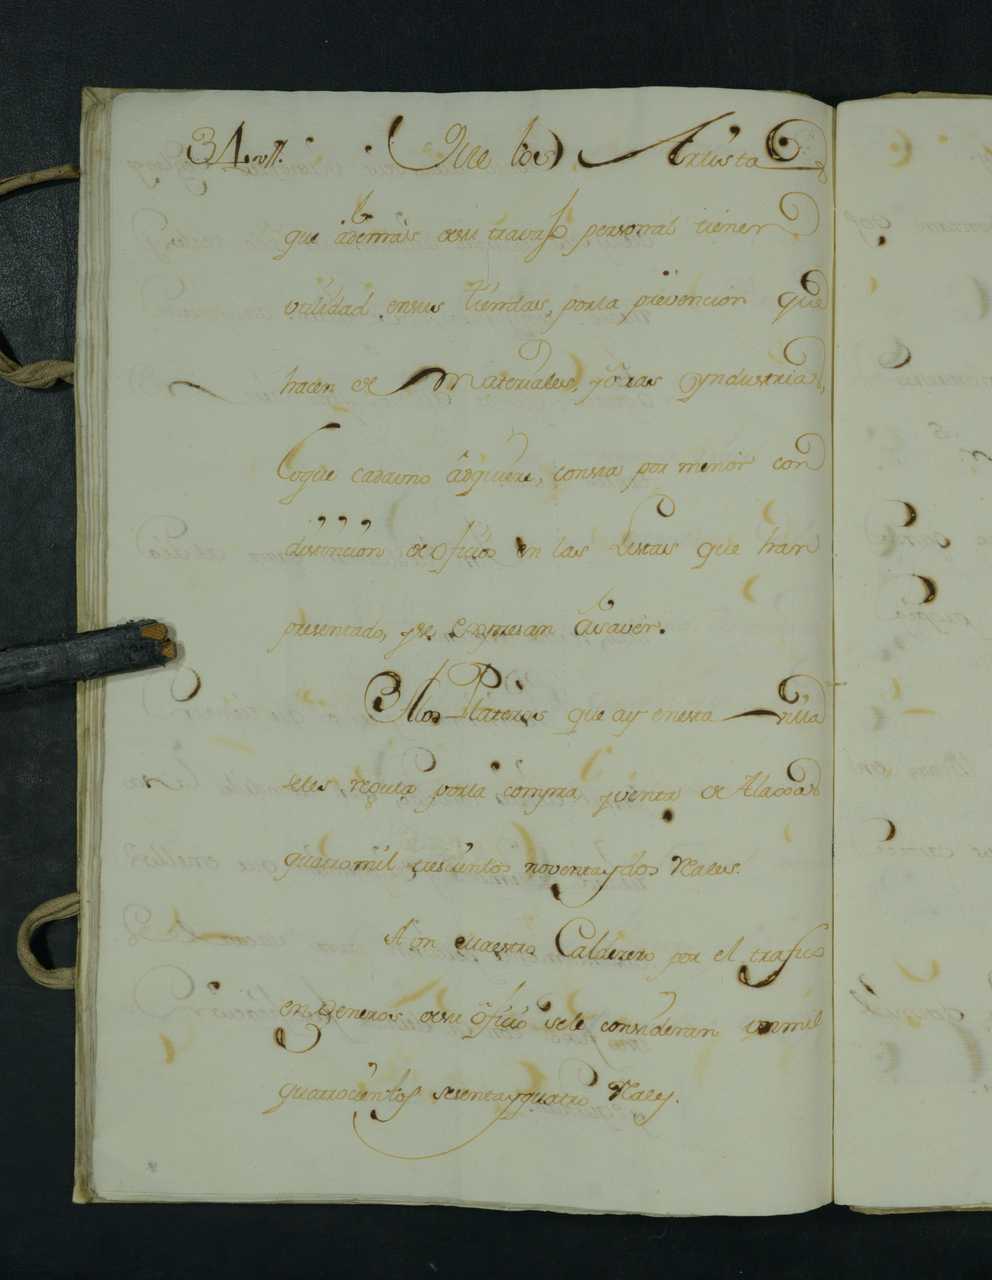 34 Que los Artistas
que además desu travajo personal tienen
utilidad ensus tiendas, porla prevencion que
hacen de Materiales, y otras Yndustrias,
Loque cadauno adquiere, consta por menor con
distincion de oficios en las Listas que han
presentado, yse Expresan Asaver.
Alos Plateros que ay enesta Villa
seles regula porla compra yventa de Alaxas
quatromil trescientos noventaydos Rales.
A un Maestro Calderero por el trafico
en Generos desu oficio sele consideran unmil
quatrocientos sesentayquatro Rales.